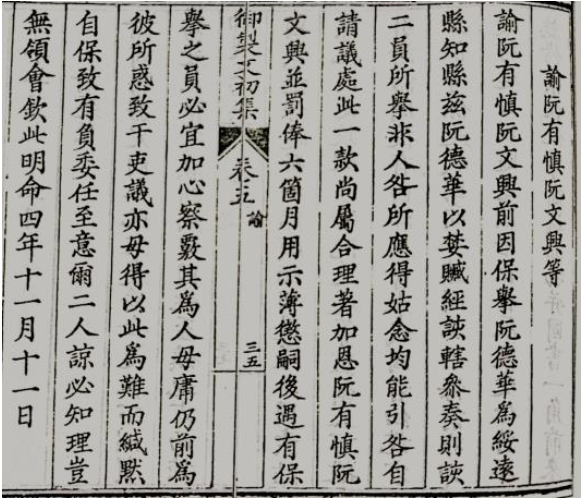 諭阮有慎阮文興等
諭阮有慎阮文興前因保舉阮德華爲綏遠
縣知縣兹阮德華以婪贓經該轄叅奏則該
二員所舉非人咎所應得姑念均能引咎自
請議處此一款尚屬合理著加恩阮有慎阮
文興並罰俸六箇月用示薄懲嗣後遇有保
御製文初集 卷五 諭 三五
舉之員必宜加心察覈其爲人毋庸仍前爲
彼所惑致干吏議亦毋得以此爲難而緘默
自保致有負委任至意爾二人諒必知理豈
無領會欽此明命四年十一月十一日